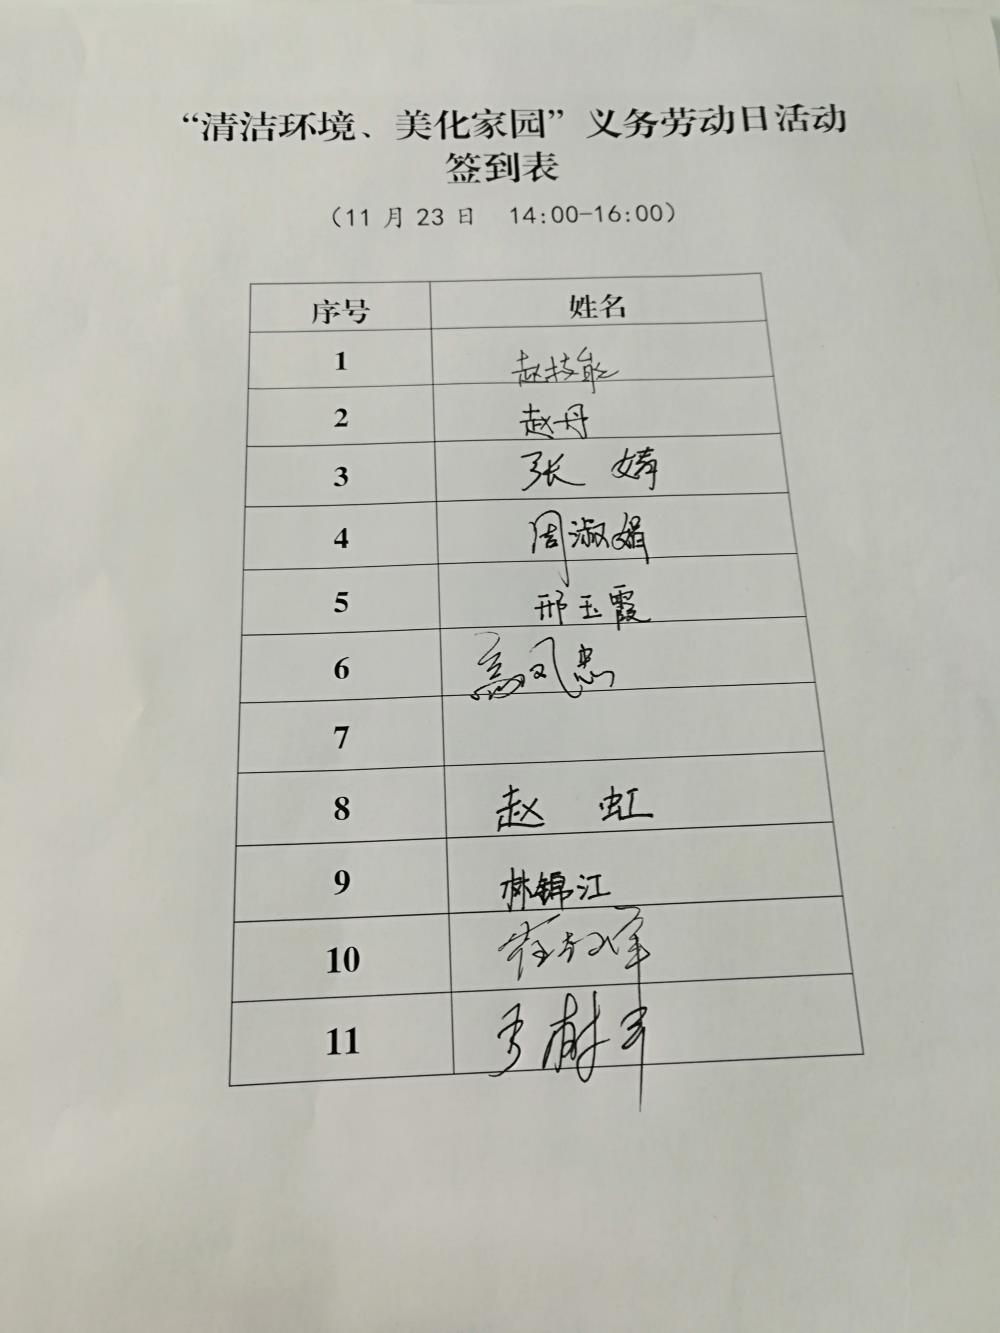 “清洁环境、美化家园”义务劳动日活动
签到表
（11月23日 14:00-16:00）
序号 姓名
1 赵技能
2 赵丹
3 张婧
4 周淑娟
5 邢玉霞
6 高凤忠
7
8 赵虹
9 林锦江
10
11